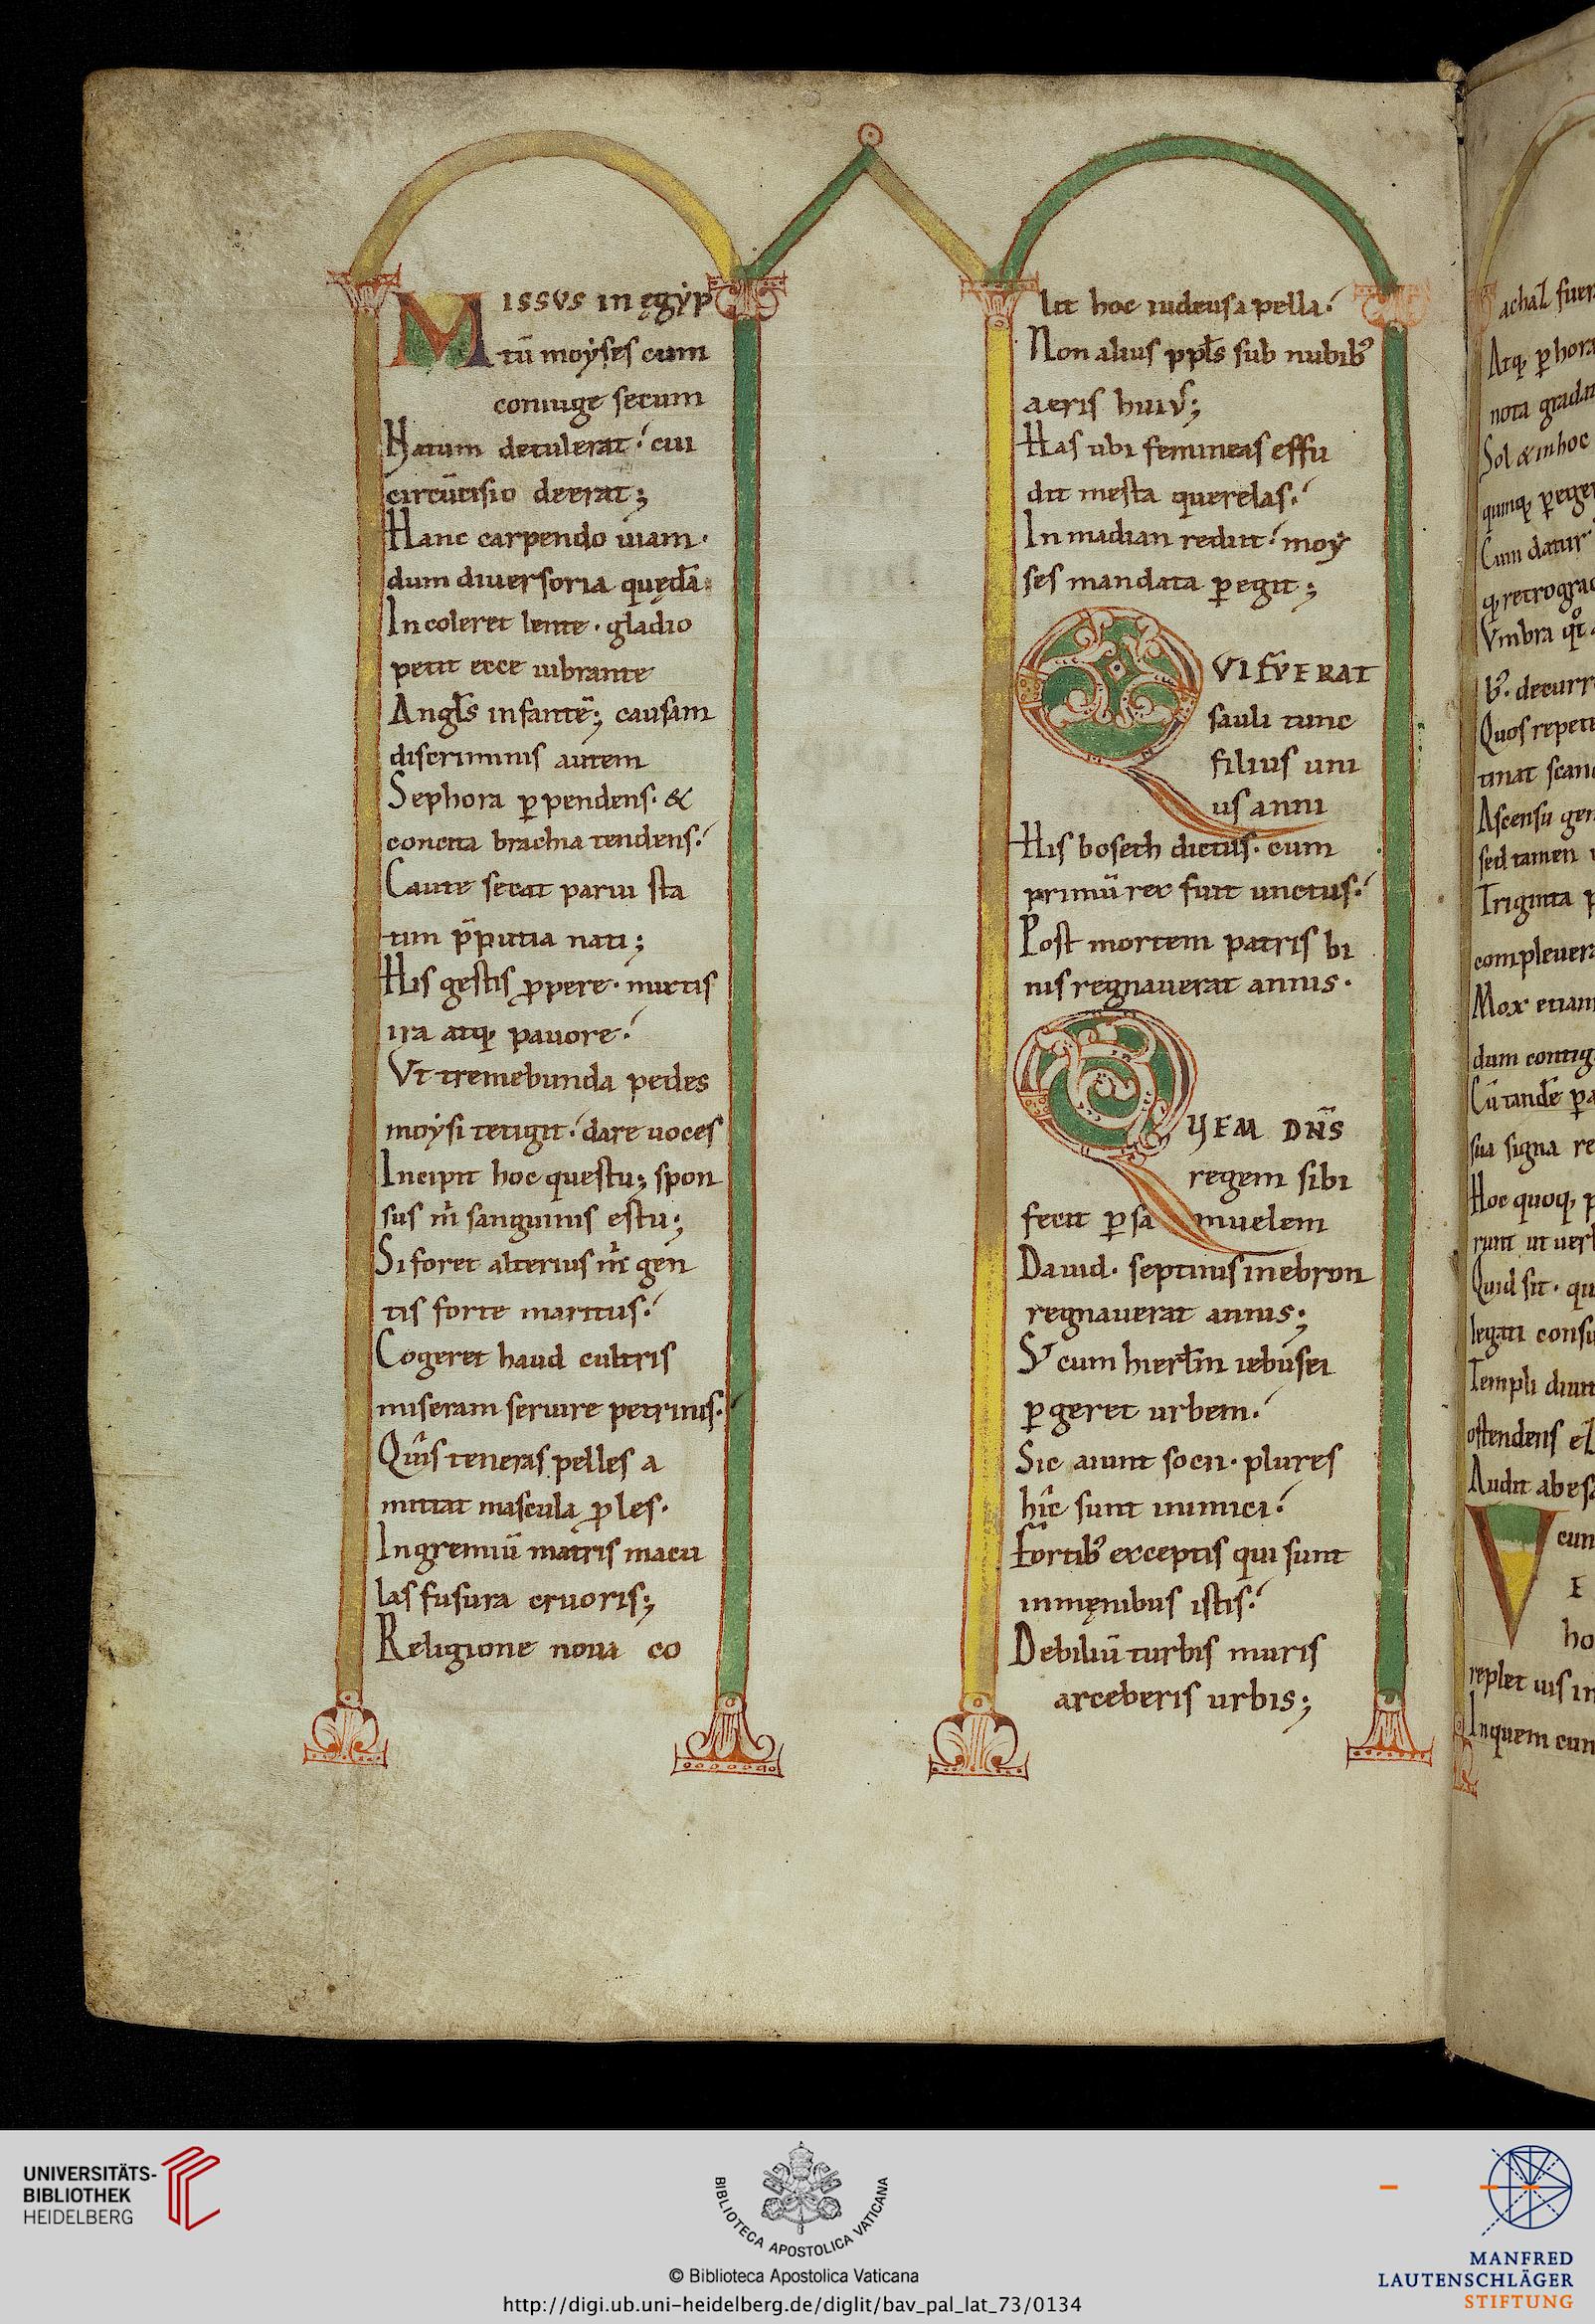 MISSUS IN ęgyp
tū moyses cum
coniuge secum
Natum detulerat. cui
circūcisio deerat;
Hanc carpendo uiam.
dum diuersoria quędā
Incoleret lente. gladio
petit ecce uibrante
Angl̄s infantē; causam
discriminis autem
Sephora ꝑpendens. &
concita brachia tendens.
Caute secat parui sta
tim p̄putia nati;
His gestis ꝓpere. mictis
ira atq; pauore.
Vt tremebunda pedes
moysi tetigit. dare uoces
Incipit hoc questu; spon
sus m̊ sanguinis estu;
Si foret alterius m̊ gen
tis forte maritus.
Cogeret haud cultris
miseram seruire petrinis.
Quîs teneras pelles a
mittat mascula ꝓles.
Ingremiū matris macu
las fusura cruoris;
Religione noua co
lit hoc iudeus apella.
Non alius ppl̄s sub nubib;
aeris huiꝰ;
Has ubi femineas effu
dit mesta querelas.
In madian rediit. moy
ses mandata ꝑegit;
QVI FVERAT
sauli tunc
filius uni
us anni
His boseth dictus. cum
primū rec fuit unctus.
Post mortem patris bi
nis regnauerat annis.
QUEM DN̄S
regem sibi
fecit ꝑ samuelem
Dauid. septinis inebron
regnauerat annis;
Sꝰ cum hierl̄m iebusei
ꝑgeret urbem.
Sic aiunt socii. plures
hîc sunt inimici.
Fortib; exceptis qui sunt
inmęnibus istis.
Debiliū turbis muris
arceberis urbis;
achaz fuer
Atq; ꝑ hora
nota grada
Sol & in hoc
quinq; ꝑege
Cum datur
q; retrograd
Vmbra
b;. decurr
Quos repeti
tinat scan
Ascensu gen
sed tamen
Triginta p
compleuer
Mox etiam
dum contig
Cū tandē ꝑa
sua signa re
Hoc quoq; p
runt ut uerb
Quid sit. qu
legati consu
Templi diuit
ostendens
Audit ab esa
V cun
E
ho
replet uis in
Inquem cun
UNIVERSITÄTS-
BIBLIOTHEK
HEIDELBERG
BIBLIOTECA APOSTOLICA VATICANA
© Biblioteca Apostolica Vaticana
http://digi.ub.uni-heidelberg.de/diglit/bav_pal_lat_73/0134
MANFRED
LAUTENSCHLÄGER
STIFTUNG